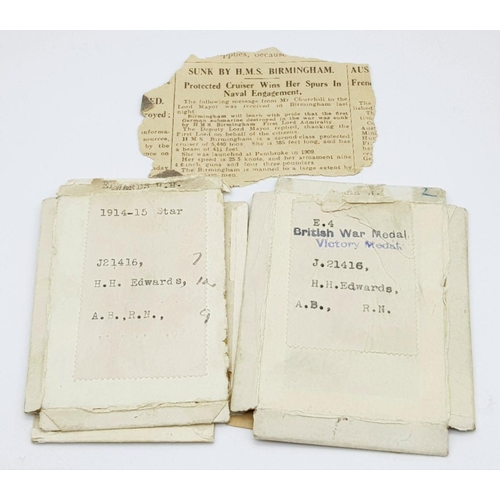 applies, because
SUNK BY H.M.S. BIRMINGHAM.
Protected Cruiser Wins Her Spurs In
Naval Engagement.
The following message from Mr Churchill to the
Lord Mayor was received in Birmingham last
night
Birmingham will learn with pride that the first
German submarine destroyed in the war was sunk
by H.M.S. Birmingham. First Lord Admiralty
The Deputy Lord Mayor replied, thanking the
First Lord on behalf of the citizens.
H.M.S. Birmingham is a second-class protected
cruiser of 5,440 tons. She is
feet long, and has
a beam of
feet.
She was launched at Pembroke in 1909
Her speed is 25.5 knots, and her armament nine
inch guns and four three pounders.
The Birmingham is manned to a large extent by
ED.
oyed:
informa
sources,
by the
AUS
Fren
1914-15 Star
J21416, 7
H.H. Edwards, 12
A.B.,R.N., 9
2
E.4
British War Medal
Victory Medal
J.21416,
H.H.Edwards,
A.B., R.N.